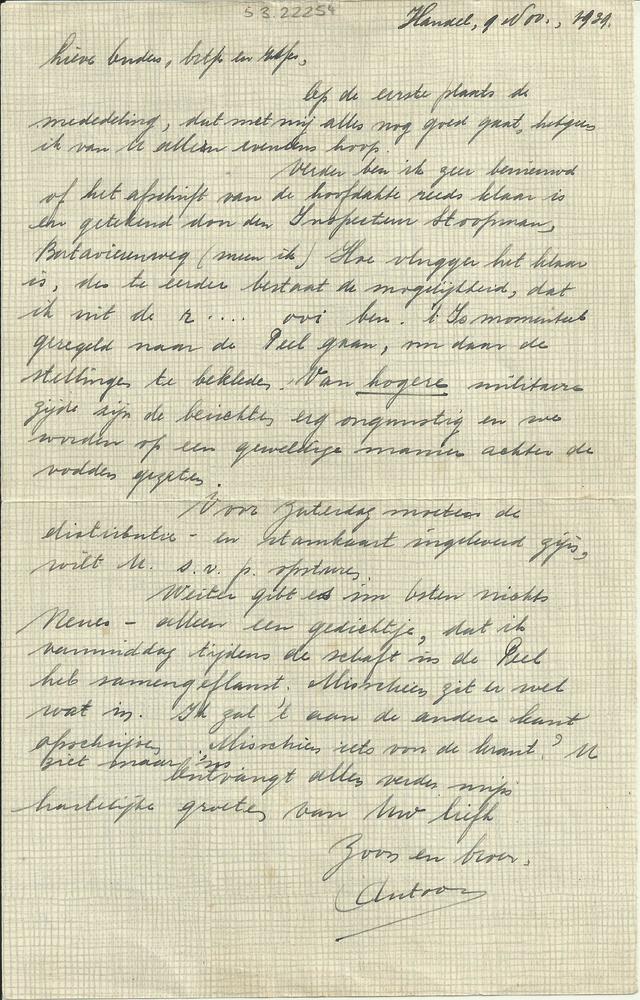 S 3.22254
Handel, 9 Nov., 1939.
Lieve Ouders, en
Op de eerste plaats de
mededeling, dat met mij alles nog goed gaat, hetgeen
ik van U allen eveneens hoop.
Verder ben ik zeer benieuwd
of het afschrift van de hoofdakte reeds klaar is
en getekend door den Inspecteur Stoopman,
Batavierenweg (meen ik) Hoe vlugger het klaar
is, des te eerder bestaat de mogelijkheid, dat
ik uit de r.... ooi ben. 't Is momenteel
geregeld naar de Peel gaan, om daar de
stellingen te bekleden. Van hogere militaire
zijde zijn de berichten erg ongunstig en we
worden op een geweldige manier achter de
vodden gezeten.
Voor Zaterdag moeten de
distributie- en stamkaart ingeleverd zijn,
wilt U. s.v.p. opsturen.
Weiter gibt es im Osten nichts
Neues - alleen een gedichtje, dat ik
vanmiddag tijdens de schaft in de Peel
heb samengeflanst. Misschien zit er wel
wat in. Ik zal 't aan de andere kant
afschrijven. Misschien iets voor de krant? U
ziet maar 'ns
Ontvangt allen verder mijn
hartelijke groeten van Uw liefh
Zoon en broer,
Antoon